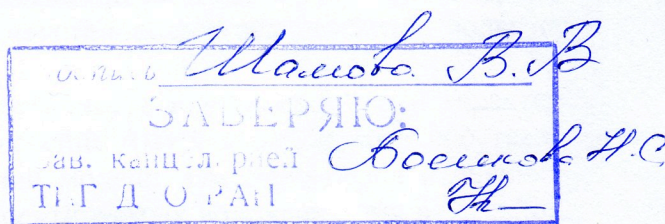 Шамова В.В
ЗАВЕРЯЮ:
Зав. канцелярией
Н.С
ТИГ ДВО РАН